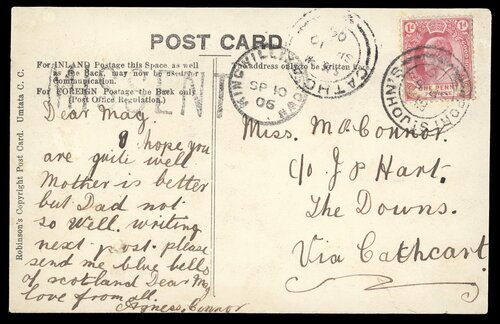 POST CARD
For INLAND Postage this Space, as well
as the Back, may now be used for
Communication.
For FOREIGN Postage the Back only
(Post Office Regulation.)
The address only to be Written
Robinson's Copyright Post Card. Umtata C. C.
KING WILLIAMS TOWN
SP 10
06
CATHC
PORT ST. JOHN'S
1d 1d
ONE PENNY
Dear Mag
I hope you
are quite well
Mother is better
but Dad not
so Well. writing
next post. please
send me blue bells
of scotland Dear Mag
love from all
Agness Connor
Miss. McConnor.
c/o J P Hart.
The Downs.
Via Cathcart.